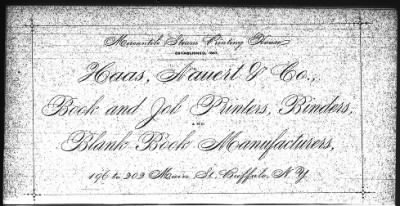 Mercantile Steam Printing House
ESTABLISHED
Haas, Nauert & Co.,
Book and Job Printers, Binders,
AND
Blank Book Manufacturers,
196 to 202 Main St. Buffalo, N.Y.